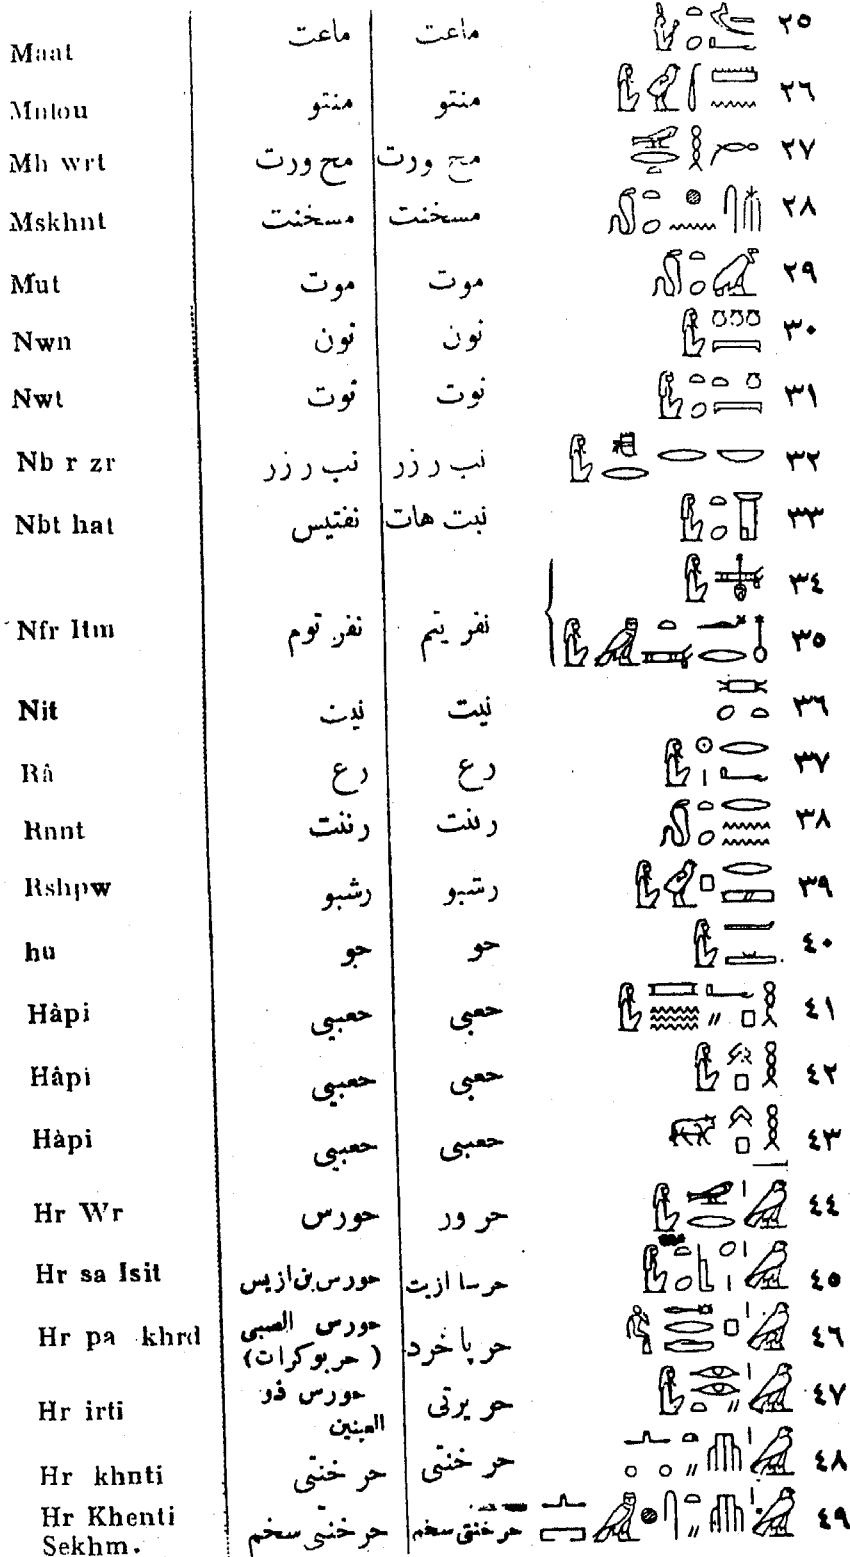 Maat ماعت ماعت ٢٥
منتو منتو ٢٦
Mh wrt مح ورت مح ورت ٢٧
Mskhnt مسخنت مسخنت ٢٨
Mut موت موت ٢٩
Nwn نون نون ٣٠
Nwt نوت نوت ٣١
Nb r zr نب ر زر نب ر زر ٣٢
Nbt hat نفتيس نبت هات ٣٣
٣٤
Nfr Itm نفر توم نفر يتم ٣٥
Nit نيت نيت ٣٦
Râ رع رع ٣٧
Rnnt رننت رننت ٣٨
Rshpw رشبو رشبو ٣٩
hu حو حو ٤٠
Hâpi حعبى حعبى ٤١
Hâpi حعبى حعبى ٤٢
Hàpi حعبى حعبى ٤٣
Hr Wr حورس حر ور ٤٤
Hr sa Isit حورس بن ازيس حر سا ازيت ٤٥
Hr pa khrd حورس الصبى (حربوكرات) حر پا خرد ٤٦
Hr irti حورس ذو العينين حر يرتى ٤٧
Hr khnti حر خنتى حر خنتى ٤٨
Hr Khenti Sekhm. حر خنتى سخم حر خنتى سخم ٤٩